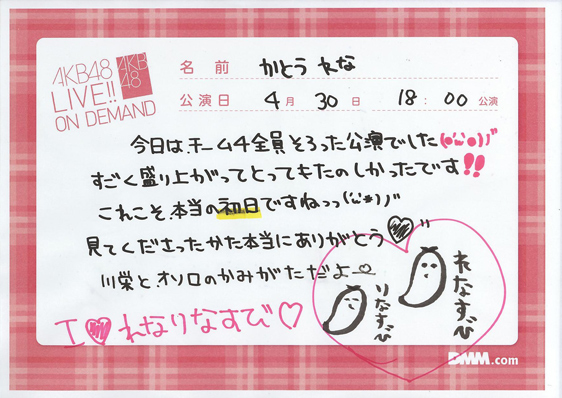 AKB48
LIVE!!
ON DEMAND
AKB
48
名前 かとう れな
公演日 4月 30日 18:00 公演
今日は、チーム4全員そろった公演でした(●'ω'●)ノ"
すごく盛り上がってとってもたのしかったです!!
これこそ、本当の初日ですねっっ('ω'*)ノ"
見てくださったかた本当にありがとう♡"
川栄と、オソロのかみがただよー♡
I ♡ れなりなすび♡
れなすび
りなすび
DMM.com